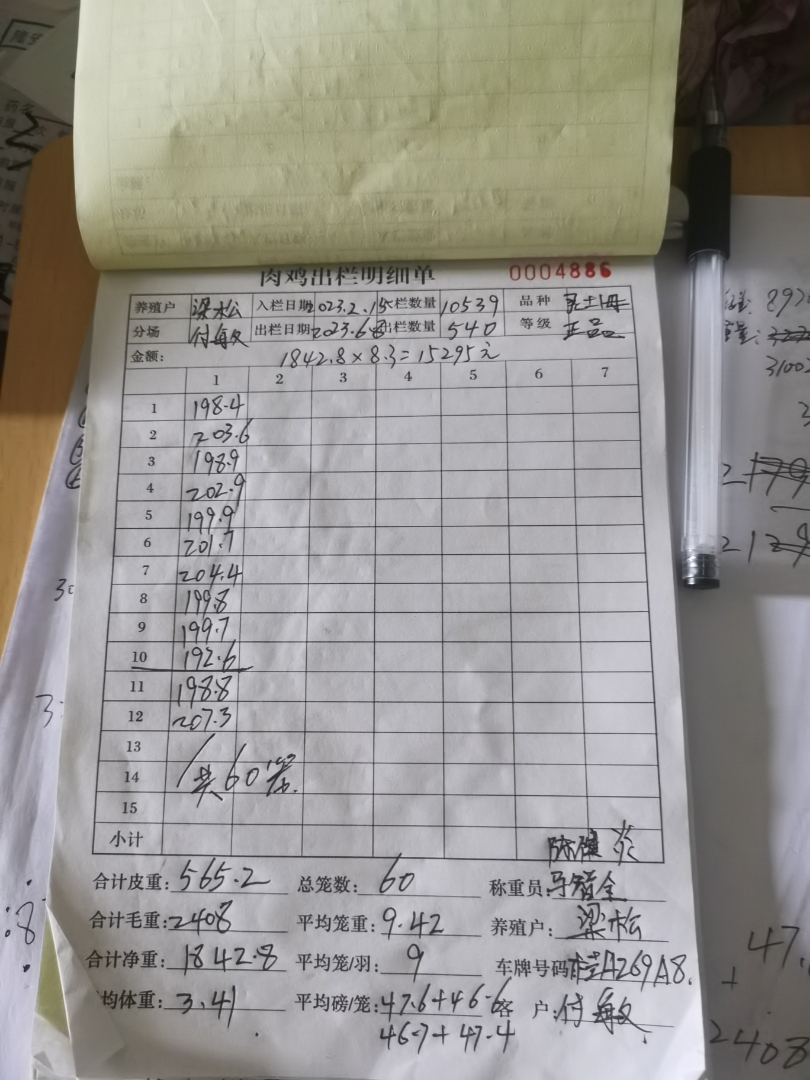 肉鸡出栏明细单 0004886
养殖户 梁松 入栏日期 2023.2.15 栏数量 10539 品种
分场 付敏 出栏日期 2023.6.8 出栏数量 540 等级 正品
金额: 1842.8×8.3=15295元
1 2 3 4 5 6 7
1 198.4
2 203.6
3 198.9
4 202.9
5 199.9
6 201.7
7 204.4
8 199.8
9 199.7
10 192.6
11 198.8
12 207.3
13
14 共60笼.
15
小计
合计皮重: 565.2 总笼数: 60 称重员
合计毛重: 2408 平均笼重: 9.42 养殖户: 梁松
合计净重: 1842.8 平均笼/羽: 9 车牌号码 桂A269A8.
均体重: 3.41 平均磅/笼: 47.6+46.6 客 户: 付敏
46.7+47.4
47.
+
2408